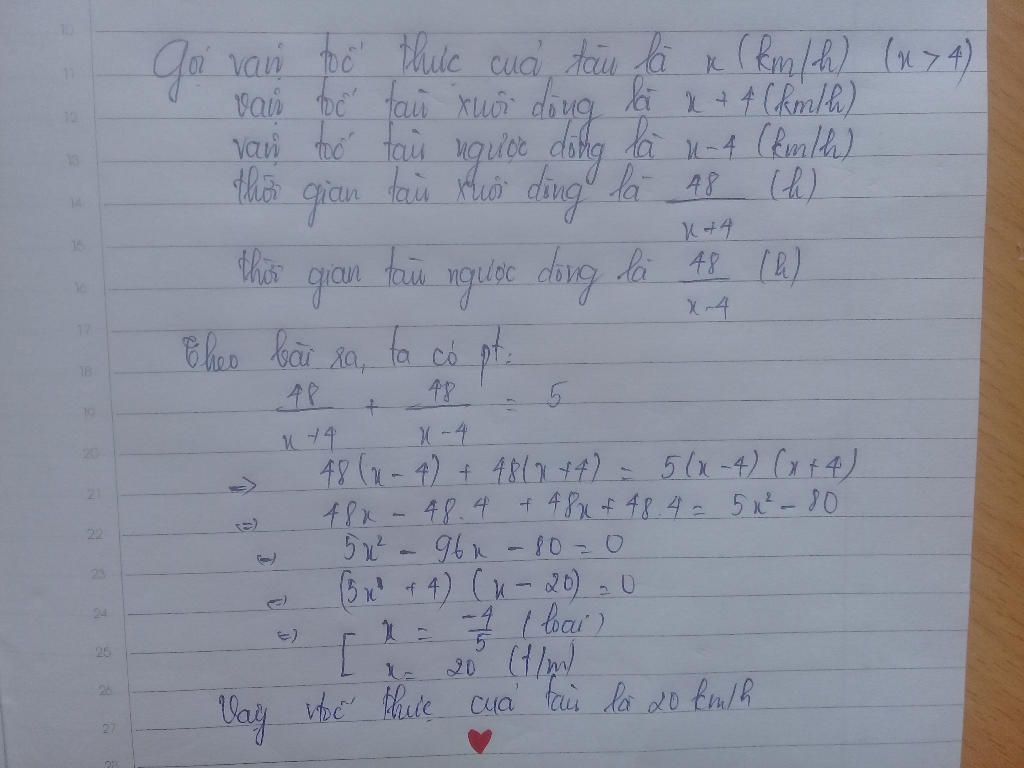 10
Gọi vận tốc thực của tàu là x (km/h) (x > 4)
11
vận tốc tàu xuôi dòng là x + 4 (km/h)
12
vận tốc tàu ngược dòng là x - 4 (km/h)
13
thời gian tàu xuôi dòng là 48/(x+4) (h)
14
15
thời gian tàu ngược dòng là 48/(x-4) (h)
16
17
Theo bài ra, ta có pt:
18
48/(x+4) + 48/(x-4) = 5
19
20
=> 48(x-4) + 48(x+4) = 5(x-4)(x+4)
21
<=> 48x - 48.4 + 48x + 48.4 = 5x² - 80
22
<=> 5x² - 96x - 80 = 0
23
<=> (5x + 4)(x - 20) = 0
24
<=> [ x = -4/5 (loại)
25
x = 20 (t/m)
26
Vậy vtốc thực của tàu là 20 km/h
27
28